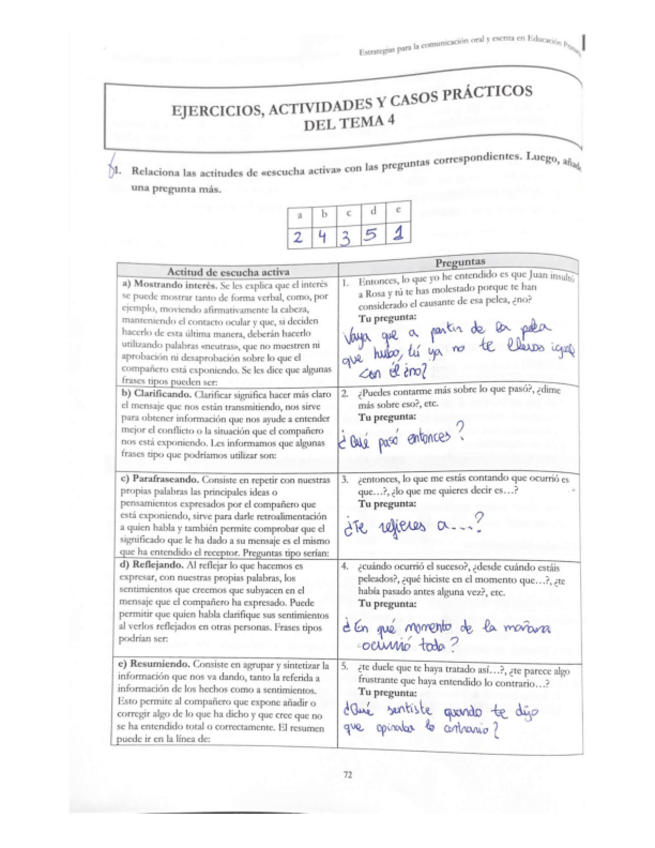 Estrategias para la comunicación oral y escrita en Educación
EJERCICIOS, ACTIVIDADES Y CASOS PRÁCTICOS
DEL TEMA 4
1. Relaciona las actitudes de «escucha activa» con las preguntas correspondientes. Luego, añade
una pregunta más.
a b c d e
2 4 3 5 1
Actitud de escucha activa
a) Mostrando interés. Se les explica que el interés
se puede mostrar tanto de forma verbal, como, por
ejemplo, moviendo afirmativamente la cabeza,
manteniendo el contacto ocular y que, si deciden
hacerlo de esta última manera, deberán hacerlo
utilizando palabras «neutras», que no muestren ni
aprobación ni desaprobación sobre lo que el
compañero está exponiendo. Se les dice que algunas
frases tipos pueden ser:
Preguntas
1. Entonces, lo que yo he entendido es que Juan insultó
a Rosa y tú te has molestado porque te han
considerado el causante de esa pelea, ¿no?
Tu pregunta:
Vaya que a partir de la pelea
que hubo, tú ya no te llevas igual
con él ¿no?
b) Clarificando. Clarificar significa hacer más claro
el mensaje que nos están transmitiendo, nos sirve
para obtener información que nos ayude a entender
mejor el conflicto o la situación que el compañero
nos está exponiendo. Les informamos que algunas
frases tipo que podríamos utilizar son:
2. ¿Puedes contarme más sobre lo que pasó?, ¿dime
más sobre eso?, etc.
Tu pregunta:
¿Qué pasó entonces?
c) Parafraseando. Consiste en repetir con nuestras
propias palabras las principales ideas o
pensamientos expresados por el compañero que
está exponiendo, sirve para darle retroalimentación
a quien habla y también permite comprobar que el
significado que le ha dado a su mensaje es el mismo
que ha entendido el receptor. Preguntas tipo serían:
3. ¿entonces, lo que me estás contando que ocurrió es
que...?, ¿lo que me quieres decir es...?
Tu pregunta:
¿Te refieres a...?
d) Reflejando. Al reflejar lo que hacemos es
expresar, con nuestras propias palabras, los
sentimientos que creemos que subyacen en el
mensaje que el compañero ha expresado. Puede
permitir que quien habla clarifique sus sentimientos
al verlos reflejados en otras personas. Frases tipos
podrían ser:
4. ¿cuándo ocurrió el suceso?, ¿desde cuándo estáis
peleados?, ¿qué hiciste en el momento que...?, ¿te
había pasado antes alguna vez?, etc.
Tu pregunta:
¿En qué momento de la mañana
ocurrió todo?
e) Resumiendo. Consiste en agrupar y sintetizar la
información que nos va dando, tanto la referida a
información de los hechos como a sentimientos.
Esto permite al compañero que expone añadir o
corregir algo de lo que ha dicho y que cree que no
se ha entendido total o correctamente. El resumen
puede ir en la línea de:
5. ¿te duele que te haya tratado así...?, ¿te parece algo
frustrante que haya entendido lo contrario...?
Tu pregunta:
¿Qué sentiste cuando te dijo
que opinaba lo contrario?
72